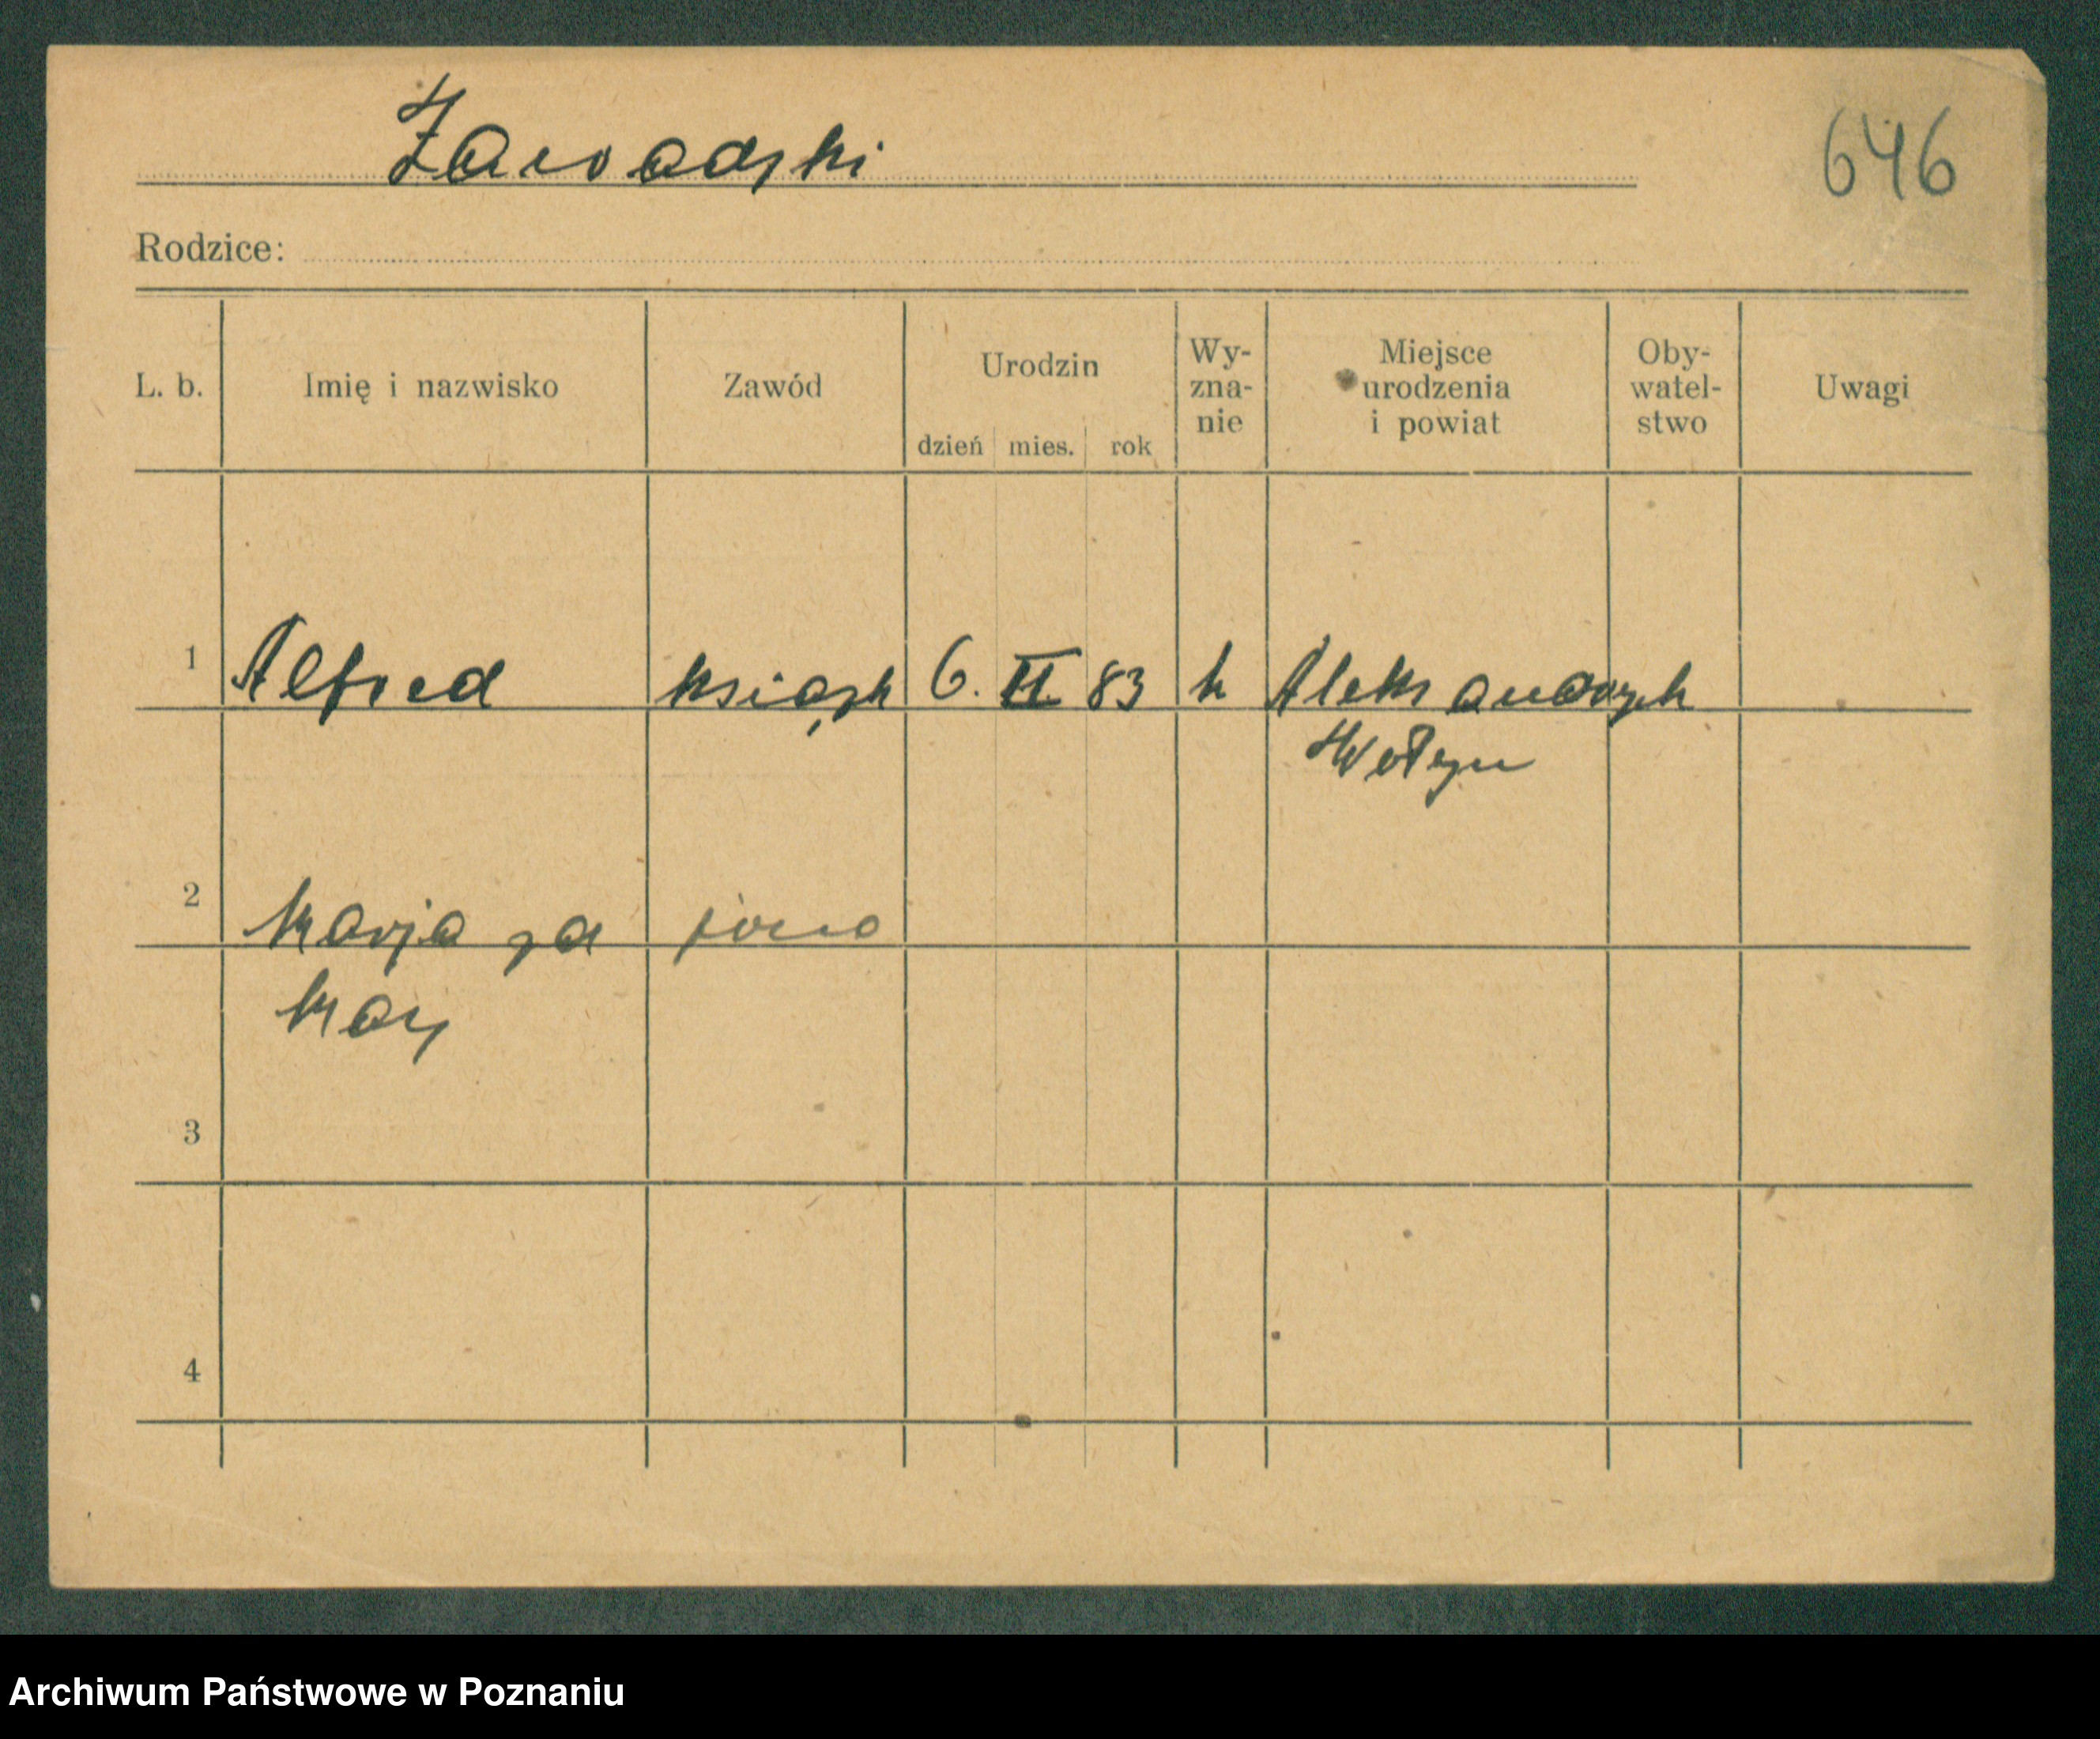 Zawadzki
646
Rodzice:
L. b.
Imię i nazwisko
Zawód
Urodzin
dzień mies. rok
Wy-
zna-
nie
Miejsce
urodzenia
i powiat
Oby-
watel-
stwo
Uwagi
1 Alfred książk 6. II. 83 k Aleksandryk
Wołyn
2 Marja za
3
4
Archiwum Państwowe w Poznaniu